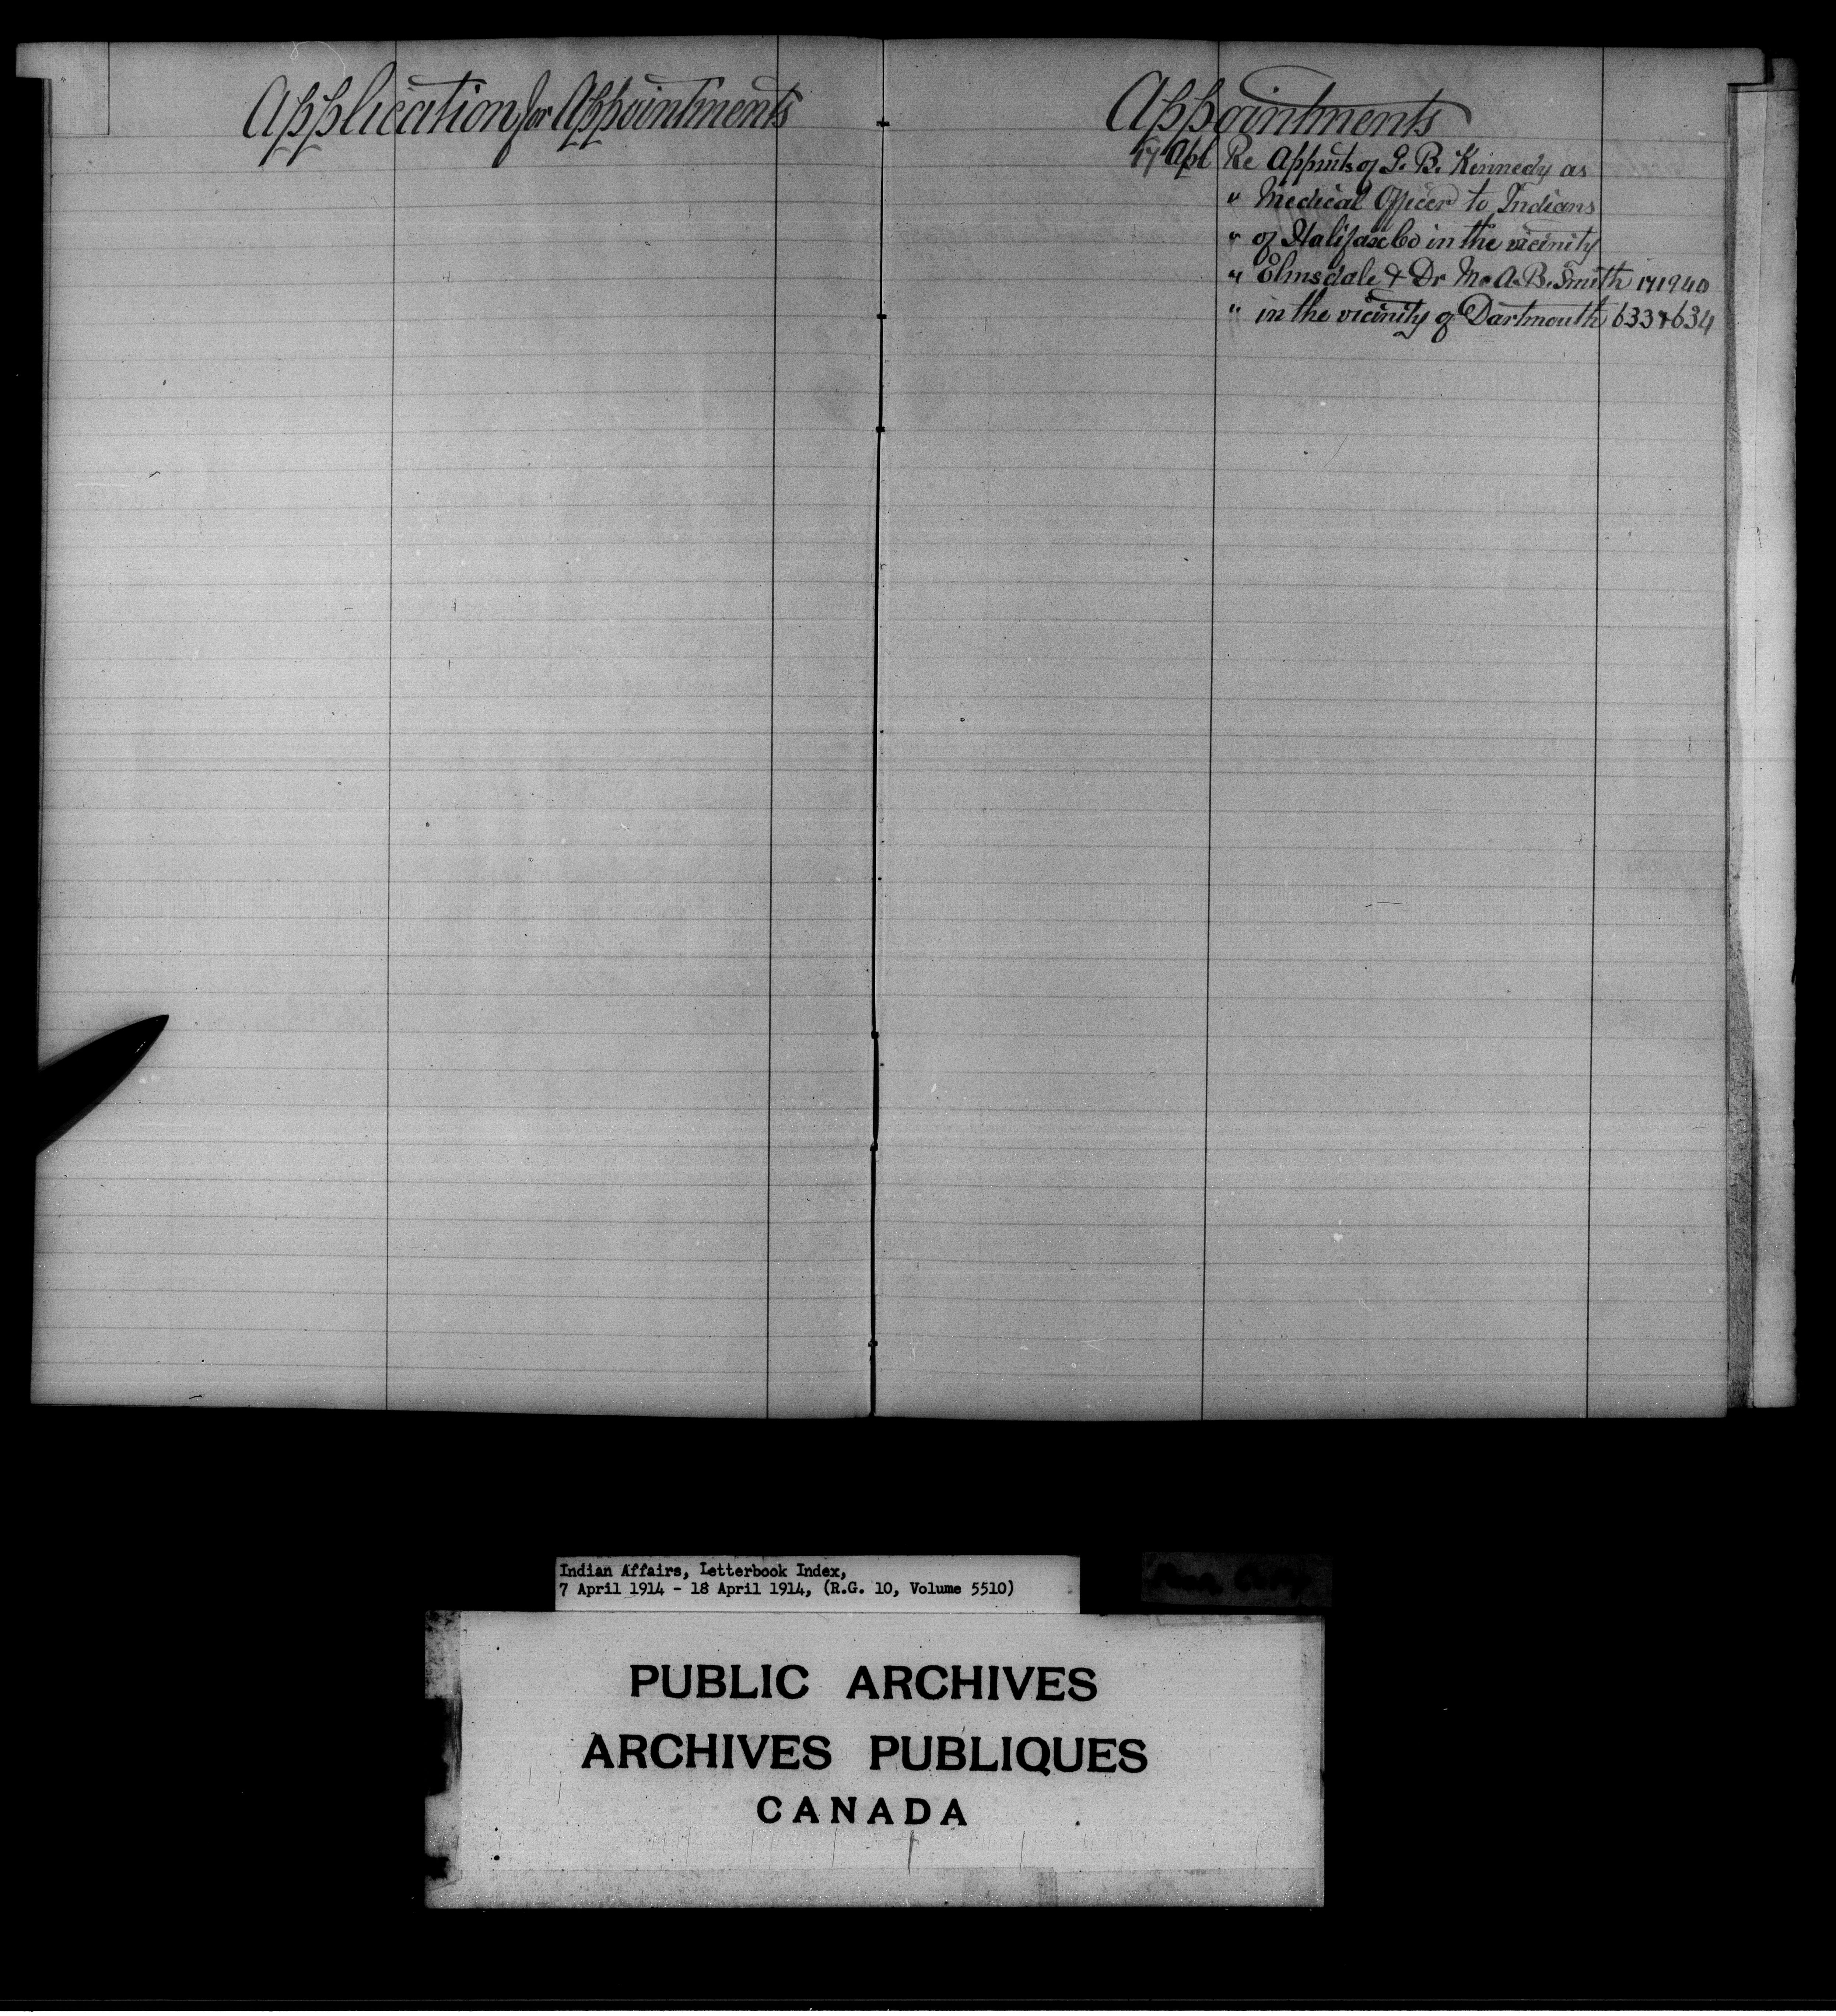 Application for Appointments
Appointments
17 Apl Re Appmts of G. B. Kennedy as
" Medical Officer to Indians
" of Halifax Co in the vicinity
" Elmsdale & Dr M. A. B. Smith 171940
" in the vicinity of Dartmouth 633 & 634
Indian Affairs, Letterbook Index,
7 April 1914 - 18 April 1914, (R.G. 10, Volume 5510)
PUBLIC ARCHIVES
ARCHIVES PUBLIQUES
CANADA